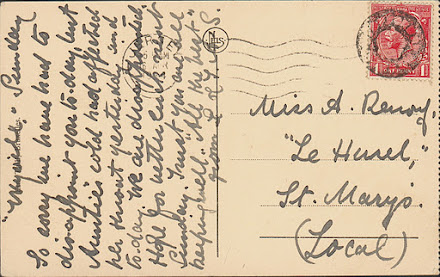 Sunday
So sorry we have had to
disappoint you to-day, but
Auntie's cold had affected
her throat yesterday and
to-day. We are disappointed.
Hope for better luck next
Sunday. Trust you are all
keeping well. All the best
from
Miss A. Renouf,
"Le Hurel,"
St. Mary's.
(Local)